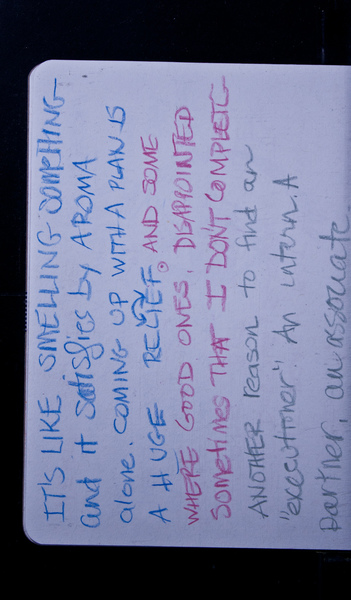 IT'S LIKE SMELLING SOMETHING
and it satisfies by AROMA
alone. COMING UP WITH A PLAN IS
A HUGE RELIEF. AND SOME
WHERE GOOD ONES. DISAPPOINTED
SOMETIMES THAT I DON'T COMPLETE
ANOTHER reason to find an
"executioner." An intern. A
partner, an associate